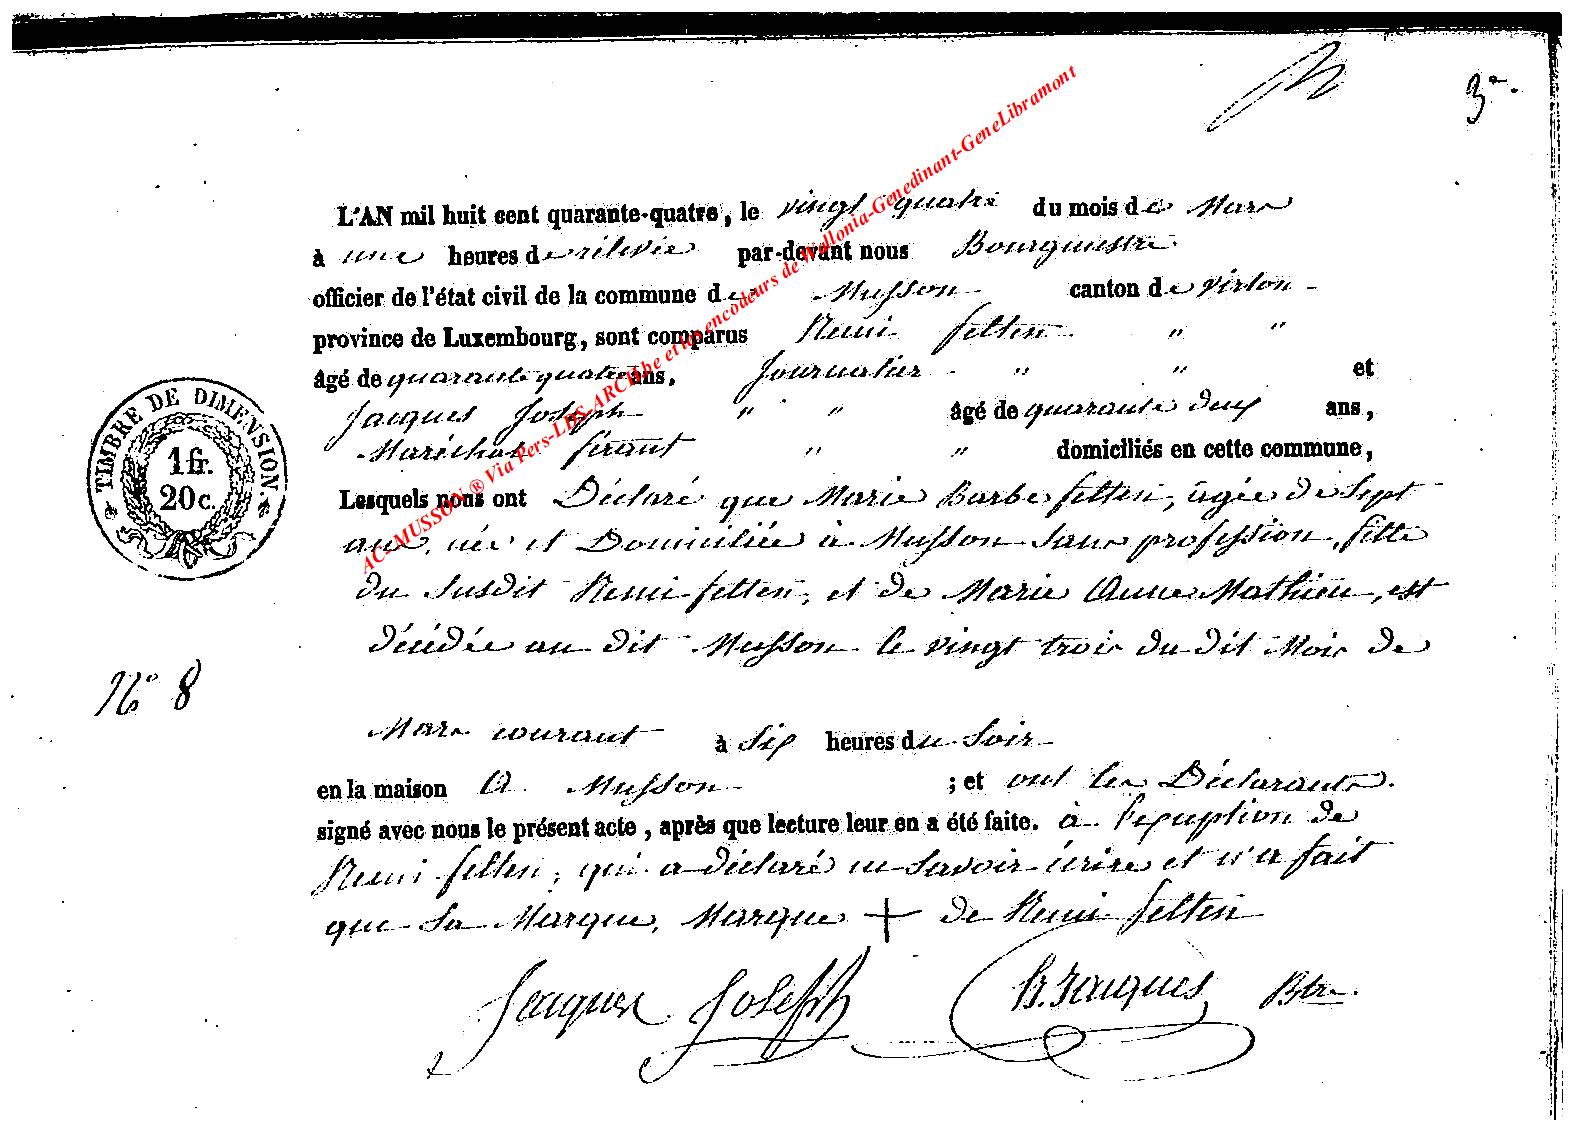 3e.
L'AN mil huit cent quarante-quatre, le vingt quatre du mois de Mars
à une heures de rélevée par-devant nous Bourgmestre
officier de l'état civil de la commune de Musson canton de virton
province de Luxembourg, sont comparus Remi felten " "
âgé de quarante quatre ans, Journalier " " et
Jacques Joseph " " âgé de quarante deux ans,
Maréchal férant " " domiciliés en cette commune,
Lesquels nous ont Déclaré que Marie Barbe felten, âgée de Sept
ans, née et Domiciliée à Musson Sans profession, fille
du Susdit Remi felten, et de Marie Anne Mathieu, est
décédée au dit Musson le vingt trois du dit Mois de
Mars courant à Six heures du Soir
en la maison A Musson ; et ont les Déclarants
signé avec nous le présent acte, après que lecture leur en a été faite. à l'exeption de
Remi felten, qui a déclaré ne Savoir écrire et n'a fait
que Sa Marque, Marque + de Remi felten
Jacques Joseph Jacques Btre
No 8
TIMBRE DE DIMENSION.
1 fr.
20 c.
AC-MUSSON ® Via Pers-LES-ARCH.be et les encodeurs de Wallonia-Genedinant-GeneLibramont